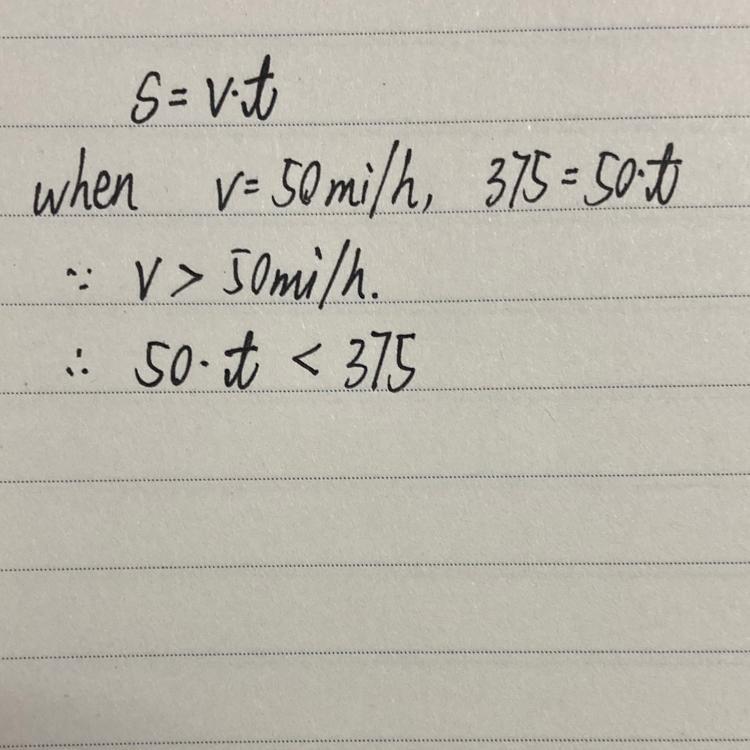 S = v·t
when v = 50mi/h, 375 = 50·t
∵ v > 50mi/h.
∴ 50·t < 375